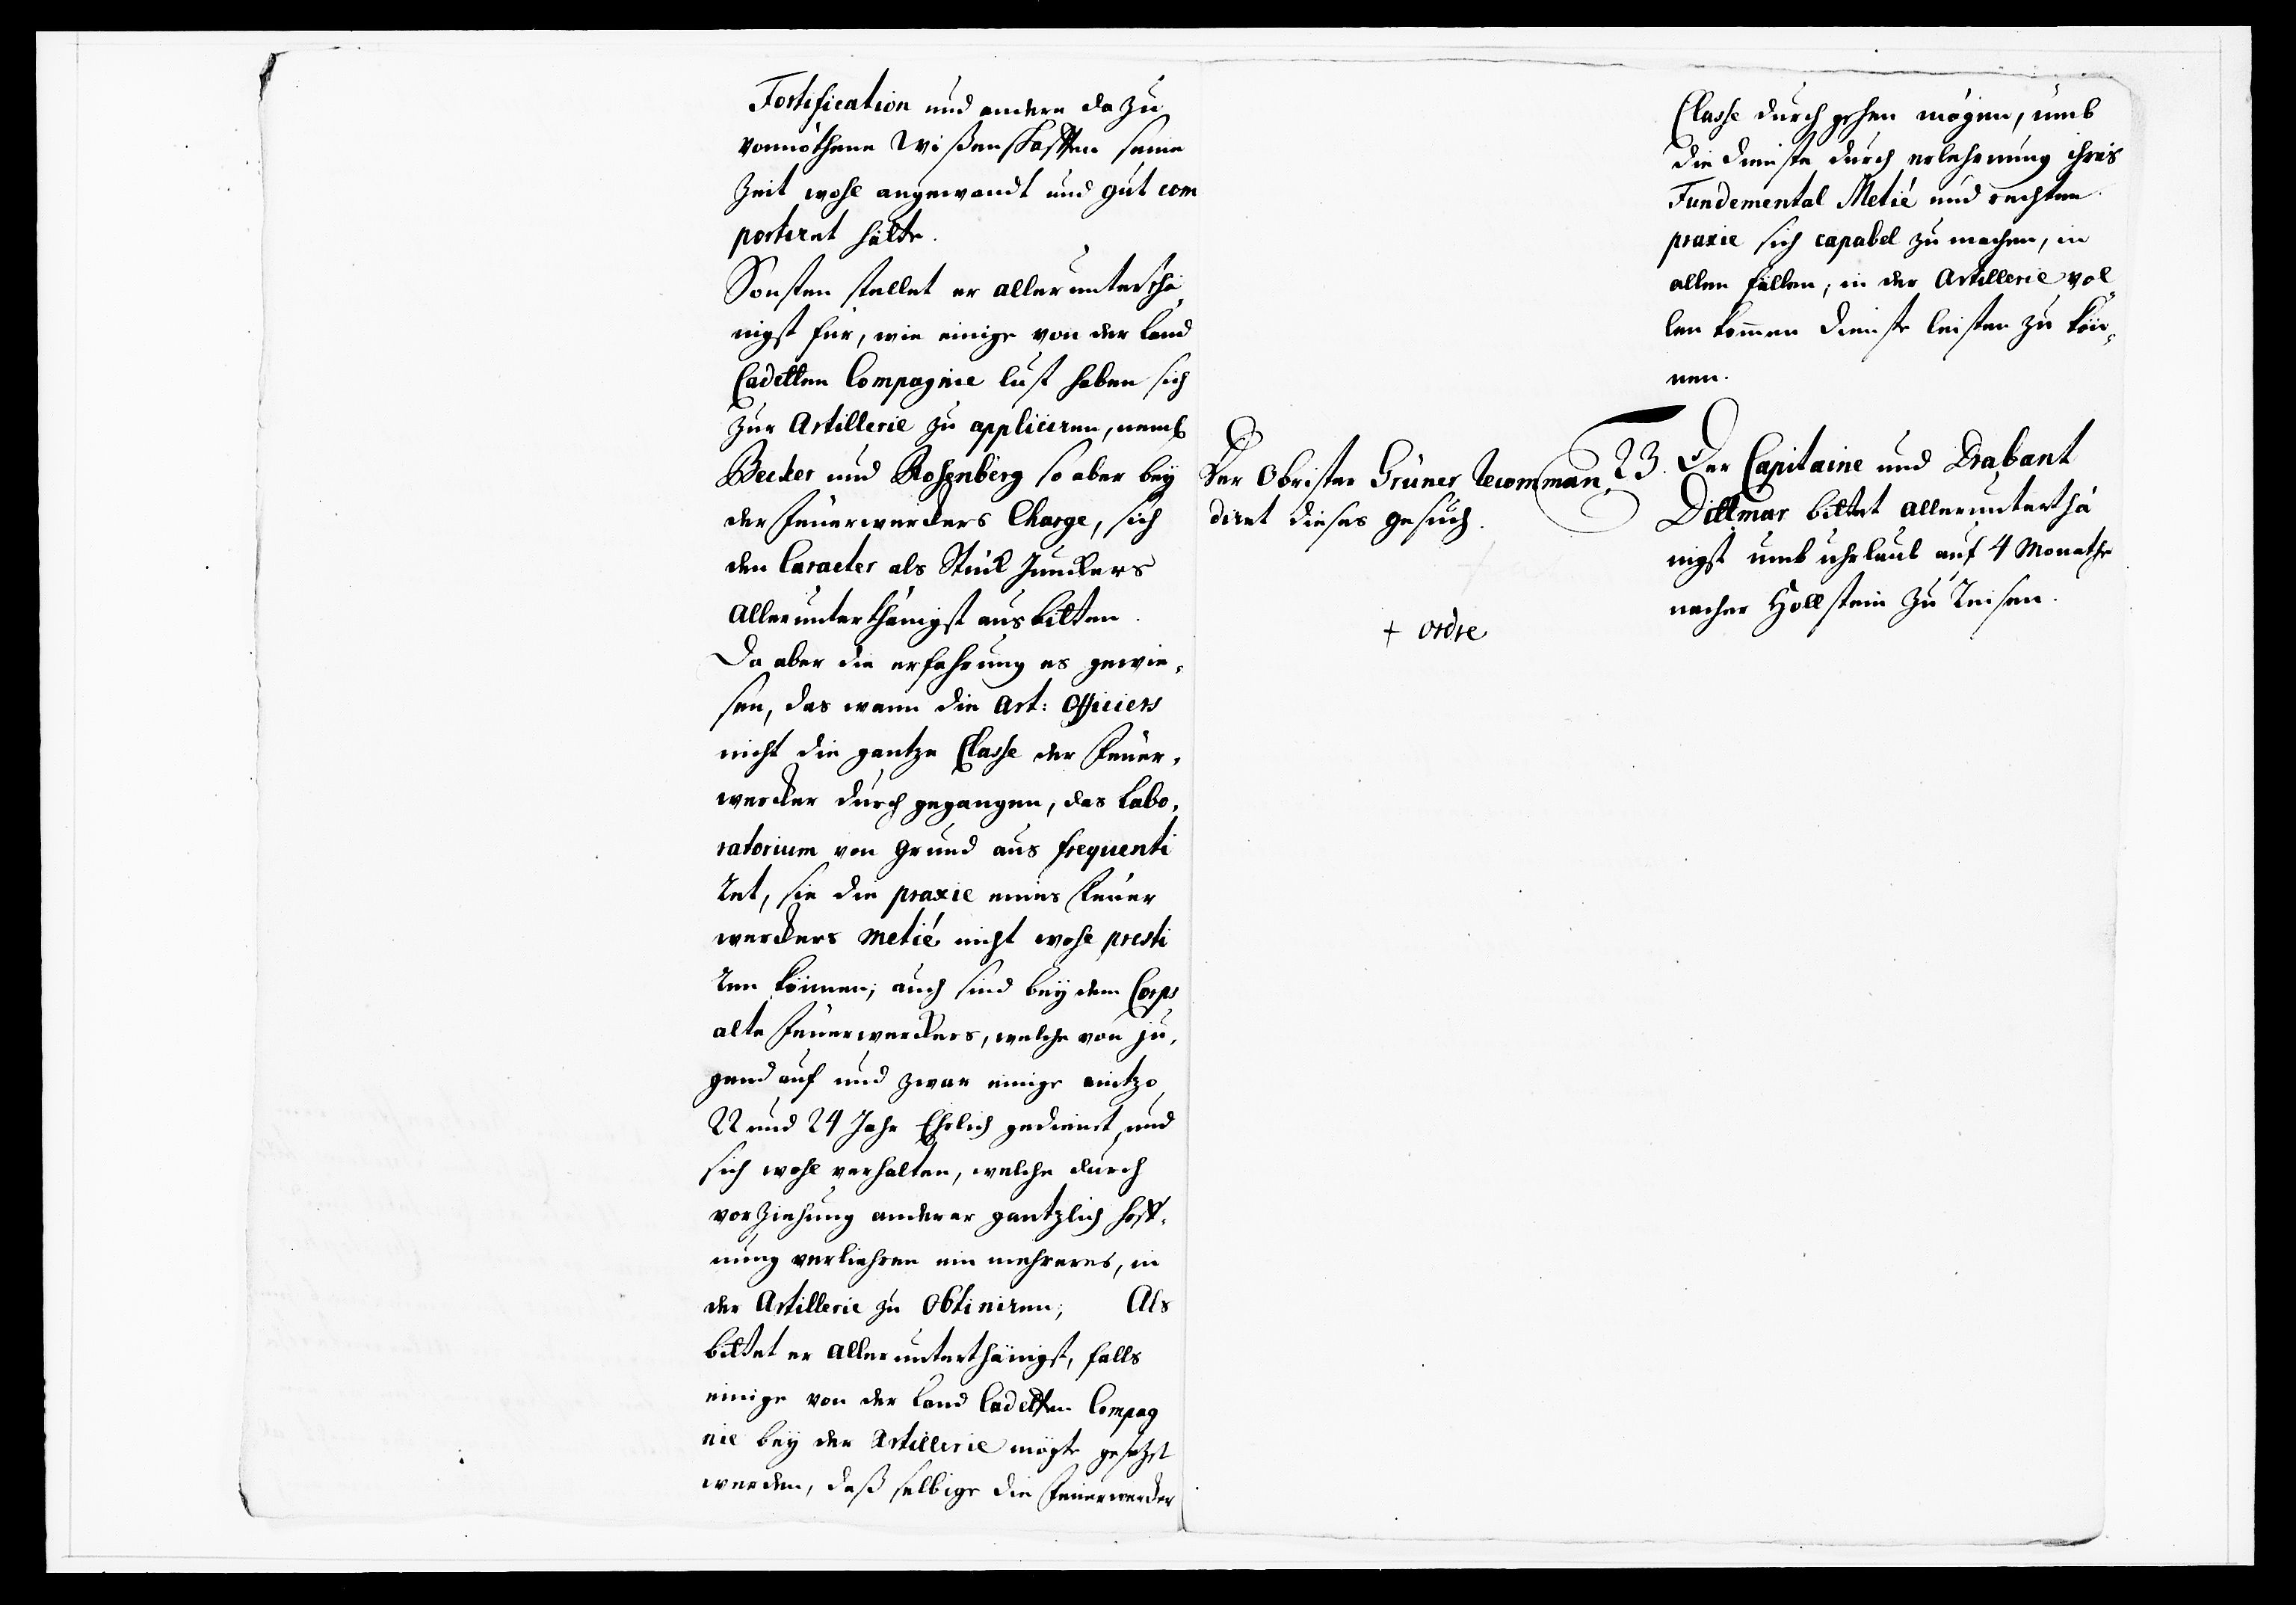 Fortification und andere da zu
vonnöthene Wißenschafften seine
Zeit wohl angewandt und gut com
portiret hätte.
Sonsten stellet er allerunterthä
nigst für, wie einige von der Land
Cadetten Compagnie lust haben sich
zur Artillerie zu appliciren, neml
Becker und Rosenberg so aber bey
der Feuerwerckers Charge, sich
den Caracter als Stück Junckers
allerunterthänigst ausbitten.
Da aber die erfahrung es gewie-
sen, das wann die Art: Officiers
nicht die gantze Classe der Feuer-
wercker durch gegangen, das Labo-
ratorium von grund aus frequenti
ret, sie die praxie eines Feuer
werckers metié nicht wohl presti
ren können; auch sind bey dem Corps
alte Feuerwerckers, welche von ju-
gend auf und zwar einige eintzo
22 und 24 Jahr Ehrlich gedienet, und
sich wohl verhalten, welche durch
vorziehung anderer gantzlich hoff-
nung verliehren ein mehreres, in
der Artillerie zu obtiniren; Als
bittet er allerunterthänigst, falls
einige von der Land Cadetten Compag
nie bey der Artillerie mögte gesetzt
werden, daß selbige die Feuerwercker
Classe durch gehen mögen, umb
die dienste durch erlehrnung ihres
Fundemental Metié und rechten
praxie sich capabel zu machen, in
allen fällen, in der Artillerie vol-
len kommen dienste leisten zu kön-
nen.
Der Obrister Grüner recomman-
diret dieses gesuch.
+ ordre
23. Der Capitaine und Drabant
Dittmar bittet allerunterthä
nigst umb uhrlaub auf 4 Monathe
nacher Hollstein zu reisen.